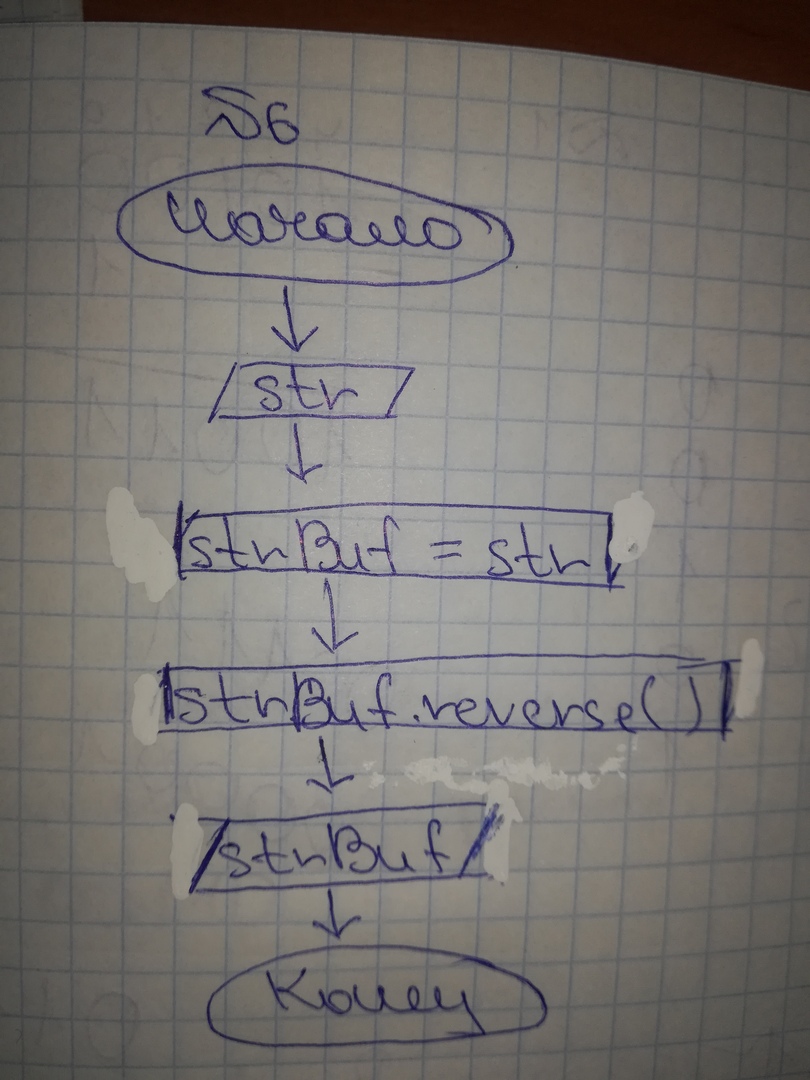 №6
Начало
str
strBuf = str
strBuf.reverse()
strBuf
Конец